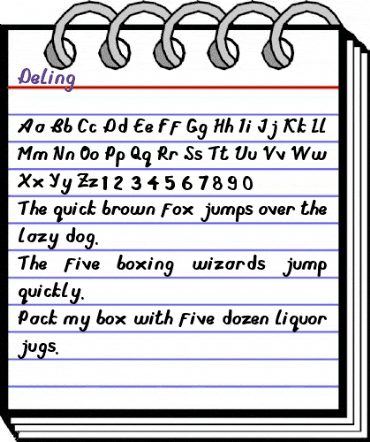 Deling
Aa Bb Cc Dd Ee Ff Gg Hh Ii Jj Kk Ll
Mm Nn Oo Pp Qq Rr Ss Tt Uu Vv Ww
Xx Yy Zz 1 2 3 4 5 6 7 8 9 0
The quick brown fox jumps over the
lazy dog.
The five boxing wizards jump
quickly.
Pack my box with five dozen liquor
jugs.